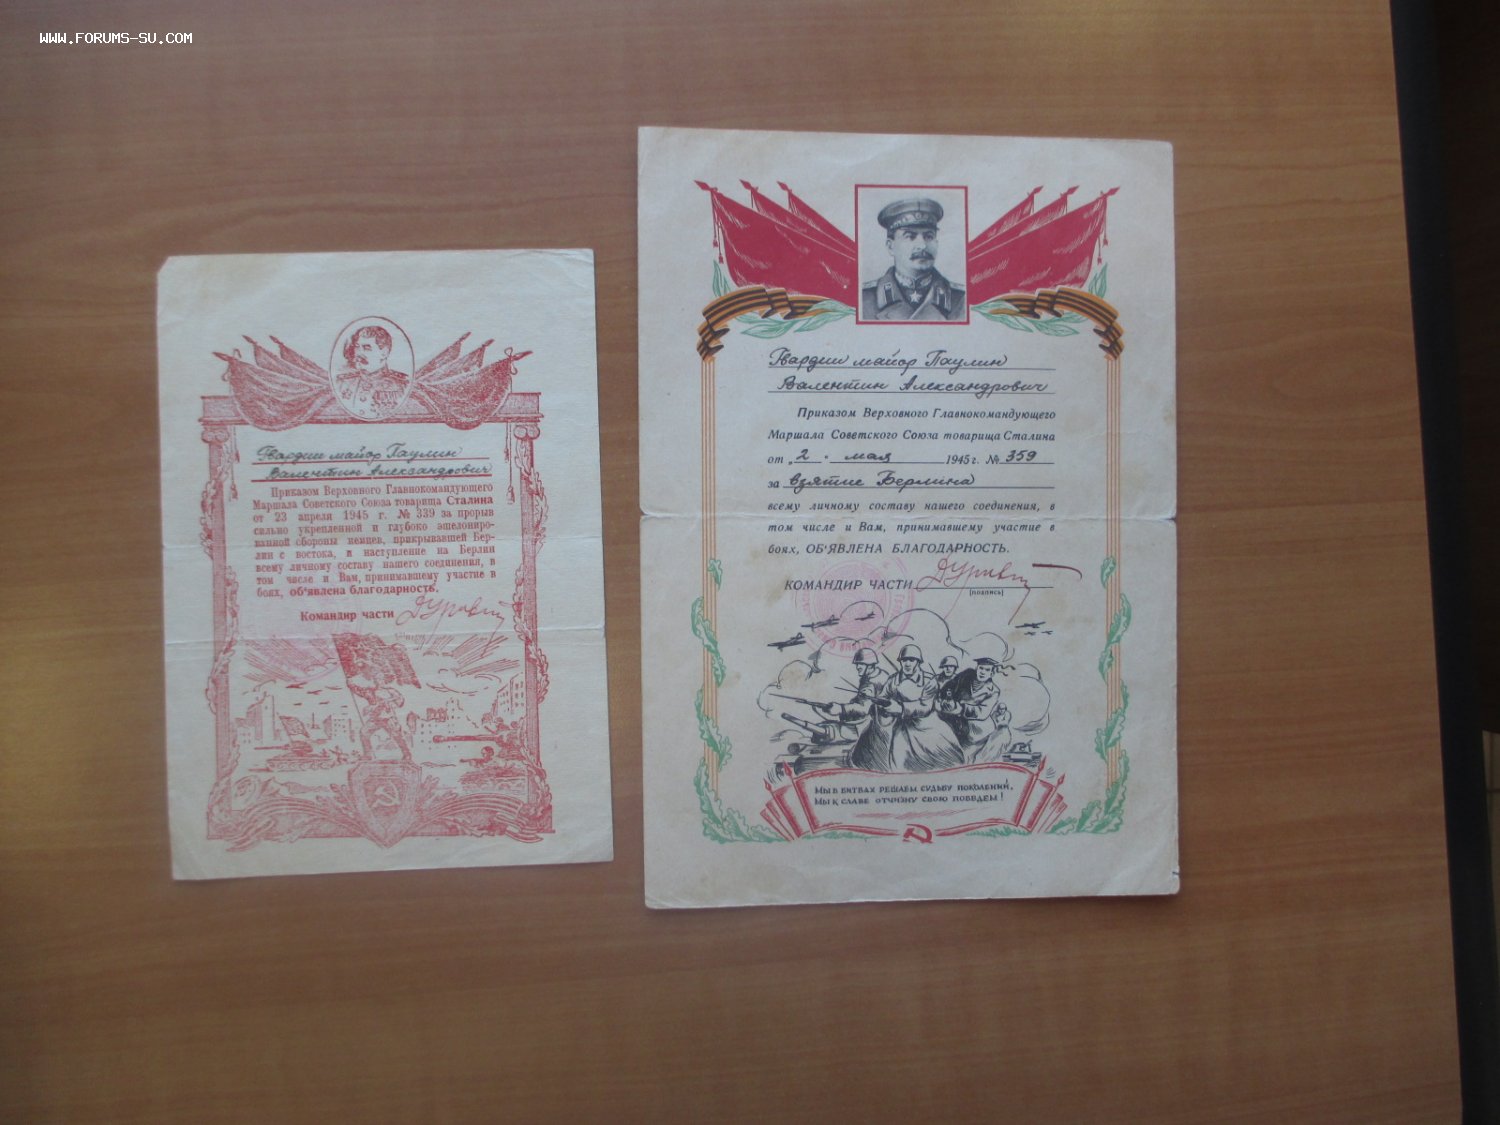 WWW.FORUMS-SU.COM
Гвардии майор Паулин
Валентин Александрович
Приказом Верховного Главнокомандующего
Маршала Советского Союза товарища Сталина
от 23 апреля 1945 г. № 339 за прорыв
сильно укрепленной и глубоко эшелониро-
ванной обороны немцев, прикрывавшей Бер-
лин с востока, и наступление на Берлин
всему личному составу нашего соединения, в
том числе и Вам, принимавшему участие в
боях, об‘явлена благодарность.
Командир части
Гвардии майор Паулин
Валентин Александрович
Приказом Верховного Главнокомандующего
Маршала Советского Союза товарища Сталина
от „2“ мая 1945 г. № 359
за взятие Берлина
всему личному составу нашего соединения, в
том числе и Вам, принимавшему участие в
боях, ОБ‘ЯВЛЕНА БЛАГОДАРНОСТЬ.
КОМАНДИР ЧАСТИ
(подпись)
Мы в битвах решаем судьбу поколений,
Мы к славе отчизну свою поведем!